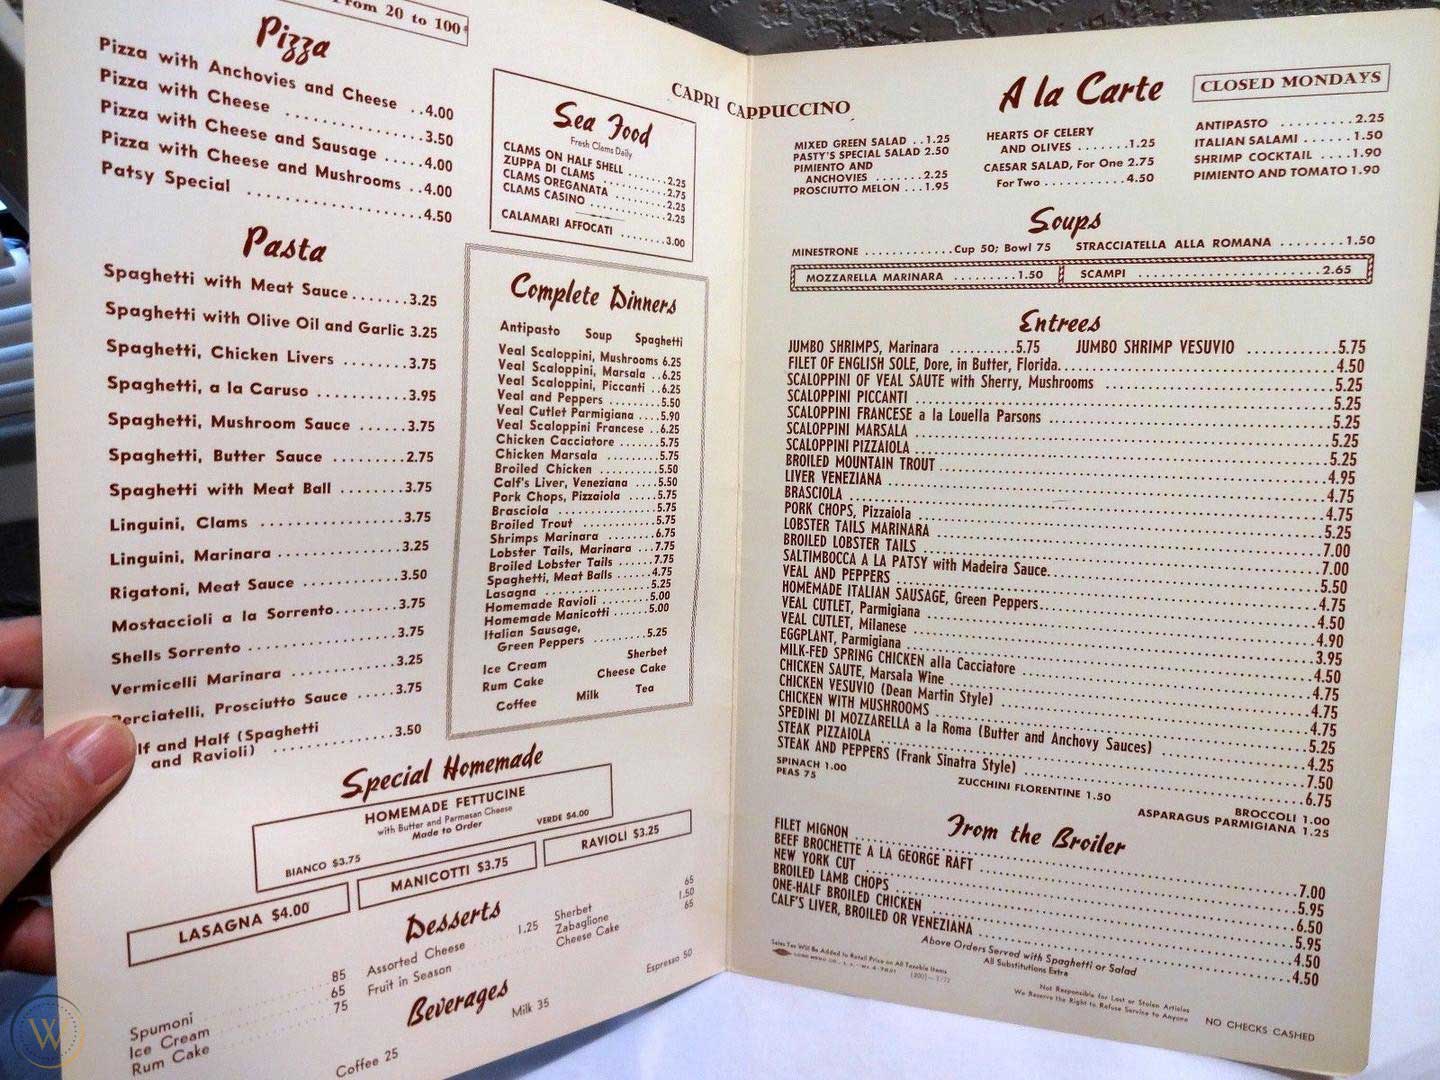 From 20 to 100¢
Pizza
Pizza with Anchovies and Cheese ..4.00
Pizza with Cheese ................3.50
Pizza with Cheese and Sausage .....4.00
Pizza with Cheese and Mushrooms ..4.00
Patsy Special ....................4.50
Pasta
Spaghetti with Meat Sauce.......3.25
Spaghetti with Olive Oil and Garlic 3.25
Spaghetti, Chicken Livers ........3.75
Spaghetti, a la Caruso ...........3.95
Spaghetti, Mushroom Sauce ......3.75
Spaghetti, Butter Sauce .........2.75
Spaghetti with Meat Ball ........3.75
Linguini, Clams .................3.75
Linguini, Marinara ..............3.25
Rigatoni, Meat Sauce ............3.50
Mostaccioli a la Sorrento........3.75
Shells Sorrento .................3.75
Vermicelli Marinara .............3.25
Perciatelli, Prosciutto Sauce .....3.75
lf and Half (Spaghetti
and Ravioli) ...............3.50
Sea Food
Fresh Clams Daily
CLAMS ON HALF SHELL .......2.25
ZUPPA DI CLAMS ............2.75
CLAMS OREGANATA ..........2.25
CLAMS CASINO .............2.25
CALAMARI AFFOCATI ........3.00
Complete Dinners
Antipasto Soup Spaghetti
Veal Scaloppini, Mushrooms 6.25
Veal Scaloppini, Marsala ..6.25
Veal Scaloppini, Piccanti ..6.25
Veal and Peppers .........5.50
Veal Cutlet Parmigiana ....5.90
Veal Scaloppini Francese ..6.25
Chicken Cacciatore .......5.75
Chicken Marsala .........5.75
Broiled Chicken ..........5.50
Calf's Liver, Veneziana ....5.50
Pork Chops, Pizzaiola .....5.75
Brasciola ................5.75
Broiled Trout ............5.75
Shrimps Marinara ........6.75
Lobster Tails, Marinara ...7.75
Broiled Lobster Tails ......7.75
Spaghetti, Meat Balls ......4.75
Lasagna .................5.25
Homemade Ravioli .......5.00
Homemade Manicotti .....5.00
Italian Sausage,
Green Peppers .........5.25
Ice Cream Sherbet
Rum Cake Cheese Cake
Coffee Milk Tea
Special Homemade
HOMEMADE FETTUCINE
with Butter and Parmesan Cheese
Made to Order
BIANCO $3.75 VERDE $4.00
LASAGNA $4.00 MANICOTTI $3.75 RAVIOLI $3.25
Desserts
Spumoni 85
Ice Cream 65
Rum Cake 75
Assorted Cheese 1.25
Fruit in Season
Sherbet 65
Zabaglione 1.50
Cheese Cake 65
Beverages
Coffee 25 Milk 35 Espresso 50
CAPRI CAPPUCCINO
A la Carte
CLOSED MONDAYS
MIXED GREEN SALAD ..1.25
PASTY'S SPECIAL SALAD 2.50
PIMIENTO AND
ANCHOVIES .......2.25
PROSCIUTTO MELON ...1.95
HEARTS OF CELERY
AND OLIVES ........1.25
CAESAR SALAD, For One 2.75
For Two ...........4.50
ANTIPASTO .........2.25
ITALIAN SALAMI ......1.50
SHRIMP COCKTAIL ....1.90
PIMIENTO AND TOMATO 1.90
Soups
MINESTRONE ............Cup 50; Bowl 75 STRACCIATELLA ALLA ROMANA ........1.50
MOZZARELLA MARINARA .........1.50 SCAMPI ............................2.65
Entrees
JUMBO SHRIMPS, Marinara ..........5.75 JUMBO SHRIMP VESUVIO .............5.75
FILET OF ENGLISH SOLE, Dore, in Butter, Florida.....4.50
SCALOPPINI OF VEAL SAUTE with Sherry, Mushrooms .....5.25
SCALOPPINI PICCANTI .....5.25
SCALOPPINI FRANCESE a la Louella Parsons .....5.25
SCALOPPINI MARSALA .....5.25
SCALOPPINI PIZZAIOLA .....5.25
BROILED MOUNTAIN TROUT .....4.95
LIVER VENEZIANA .....4.75
BRASCIOLA .....4.75
PORK CHOPS, Pizzaiola .....5.25
LOBSTER TAILS MARINARA .....7.00
BROILED LOBSTER TAILS .....7.00
SALTIMBOCCA A LA PATSY with Madeira Sauce.....5.50
VEAL AND PEPPERS .....4.75
HOMEMADE ITALIAN SAUSAGE, Green Peppers.....4.50
VEAL CUTLET, Parmigiana .....4.90
VEAL CUTLET, Milanese .....3.95
EGGPLANT, Parmigiana .....4.50
MILK-FED SPRING CHICKEN alla Cacciatore .....4.75
CHICKEN SAUTE, Marsala Wine .....4.75
CHICKEN VESUVIO (Dean Martin Style) .....4.75
CHICKEN WITH MUSHROOMS .....5.25
SPEDINI DI MOZZARELLA a la Roma (Butter and Anchovy Sauces) .....4.25
STEAK PIZZAIOLA .....7.50
STEAK AND PEPPERS (Frank Sinatra Style) .....6.75
SPINACH 1.00 ZUCCHINI FLORENTINE 1.50 BROCCOLI 1.00
PEAS 75 ASPARAGUS PARMIGIANA 1.25
From the Broiler
FILET MIGNON .....7.00
BEEF BROCHETTE A LA GEORGE RAFT .....5.95
NEW YORK CUT .....6.50
BROILED LAMB CHOPS .....5.95
ONE-HALF BROILED CHICKEN .....4.50
CALF'S LIVER, BROILED OR VENEZIANA .....4.50
Above Orders Served with Spaghetti or Salad
All Substitutions Extra
Sales Tax Will Be Added to Retail Price on All Taxable Items
Not Responsible for Lost or Stolen Articles
We Reserve the Right to Refuse Service to Anyone
NO CHECKS CASHED
W